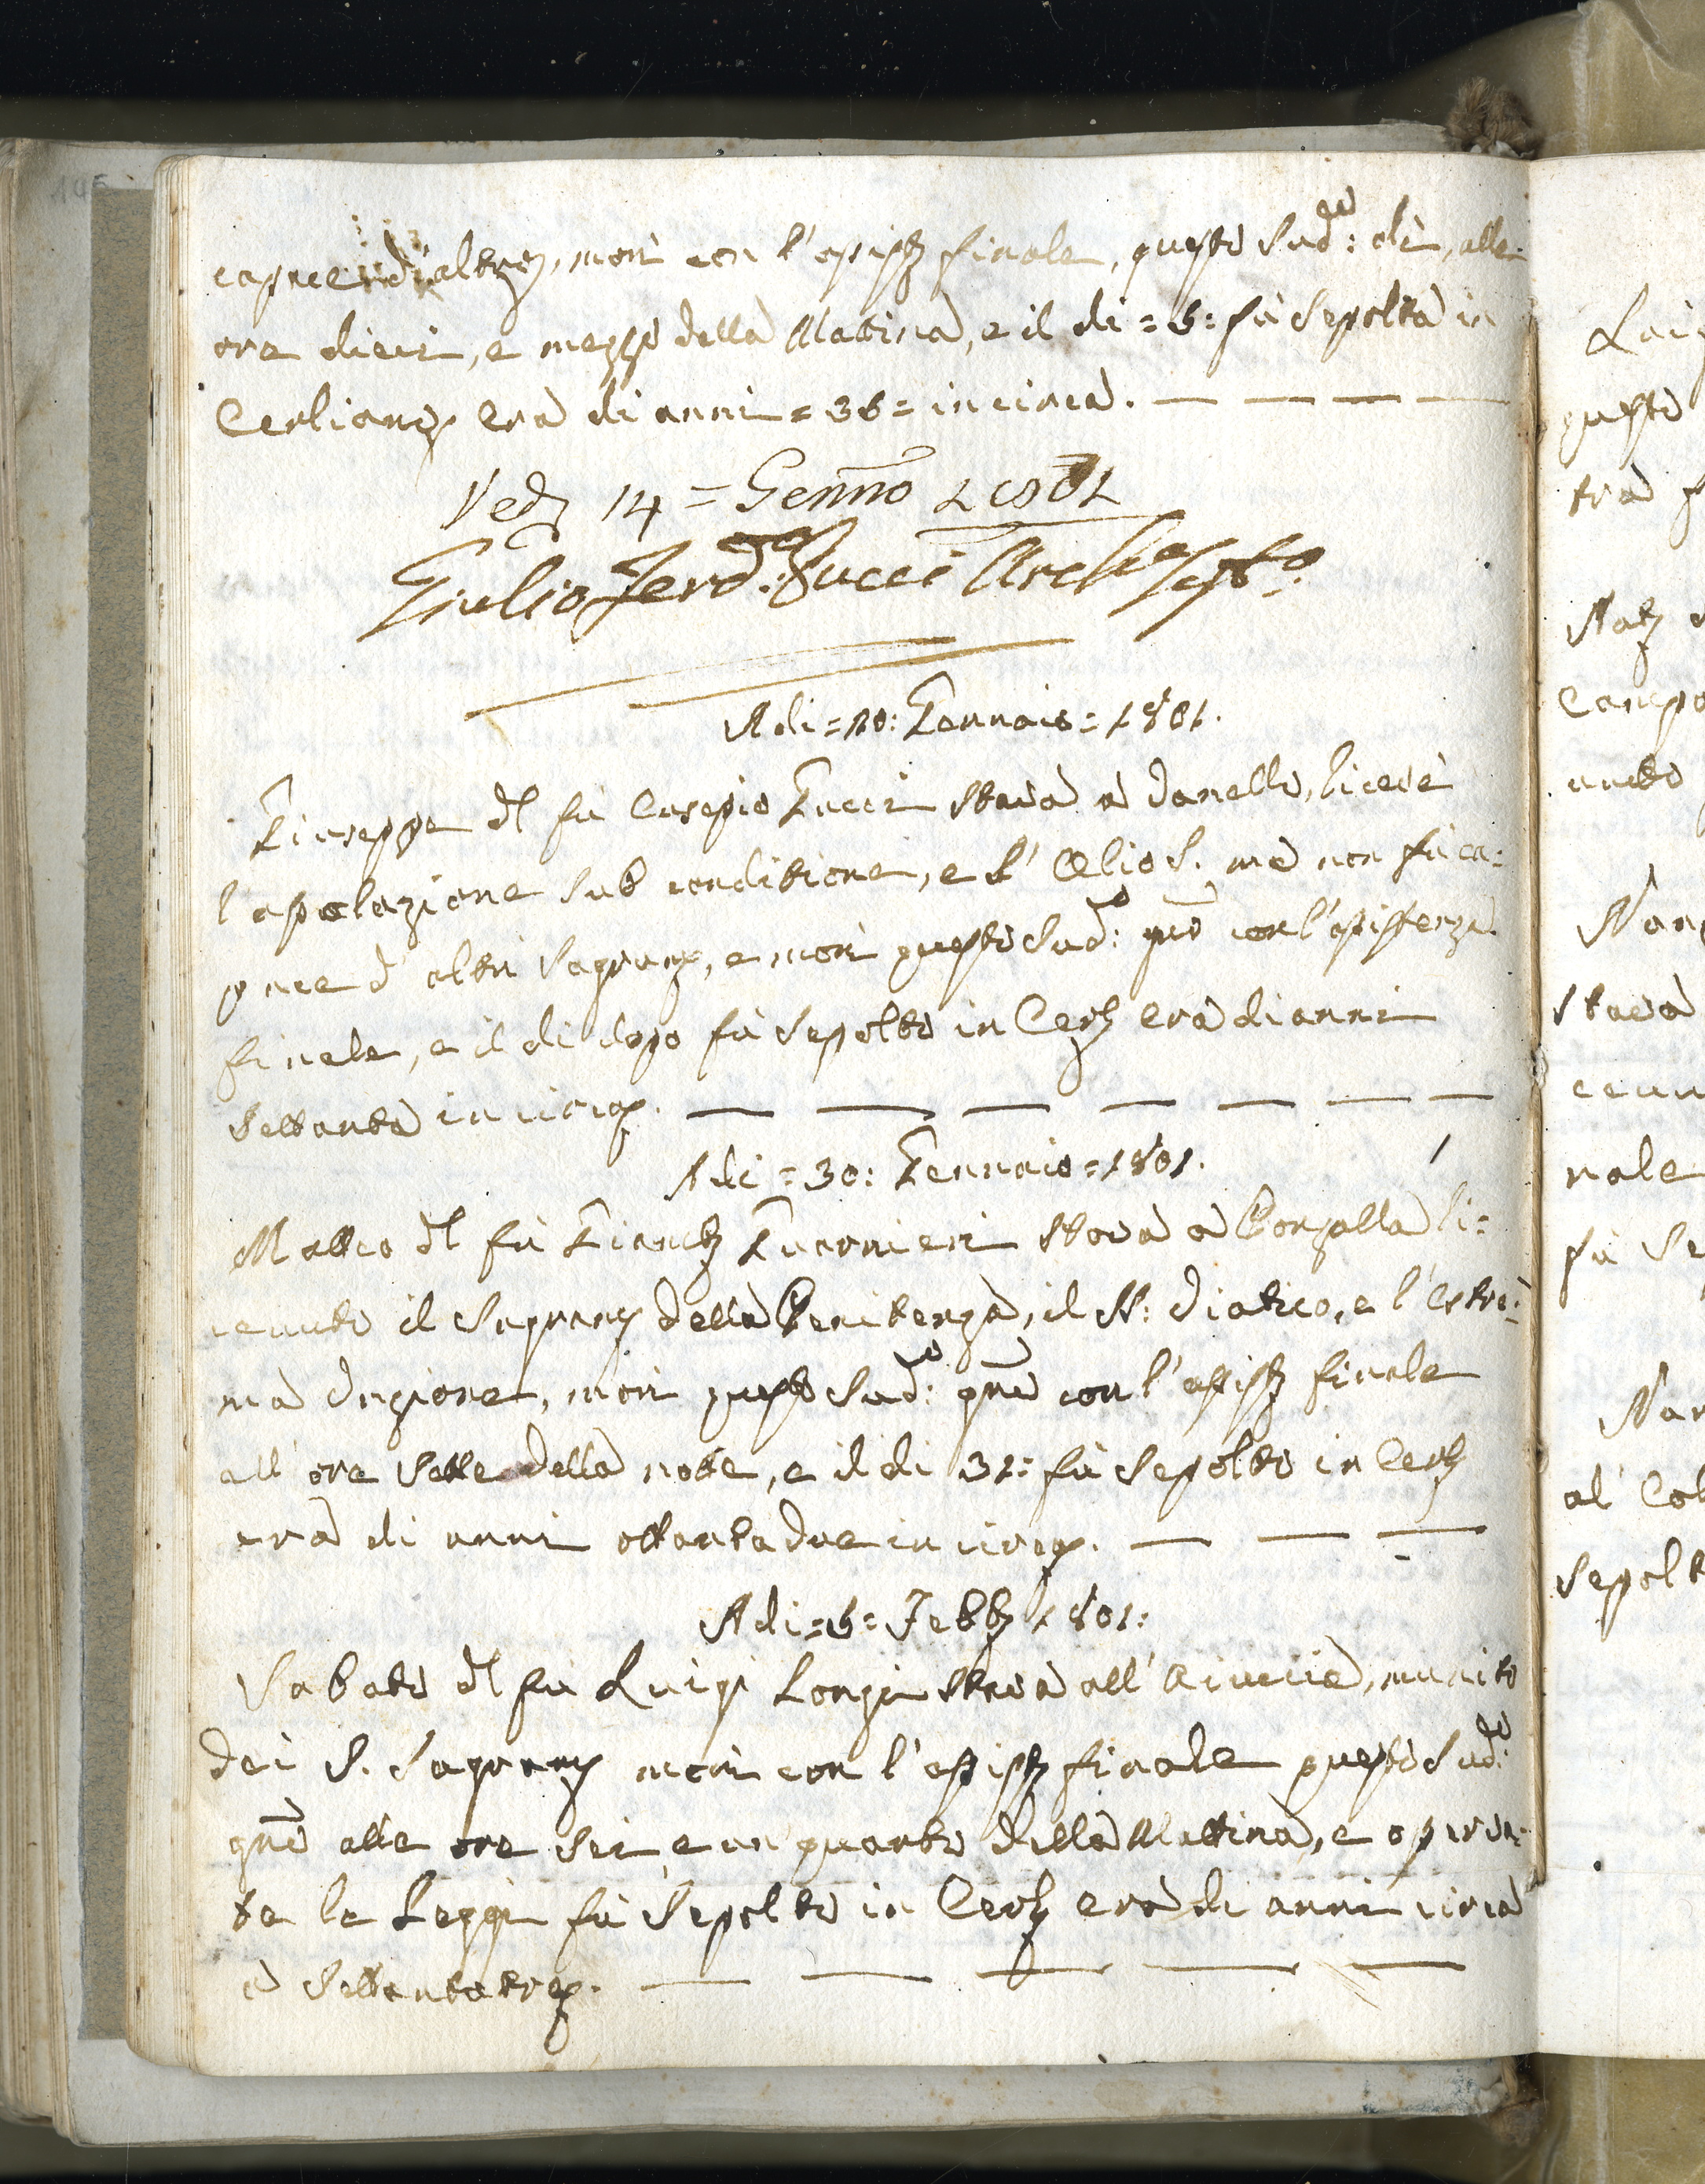 capace d'altro, morì con l'assist: finale, questo Sud: dì, alle
ore dieci, e mezzo della Mattina, e il di = 6: fù Sepolta in
Cerliano Era di anni = 36 = in circa. — — — —
Ved. 14 = Genno 1801
Giulio Ferd: Zucci
Adi = 20: Gennaio = 1801.
Giuseppe dl fù Eusepio Lucci Stava a Vanello, Riceve
l'assoluzione Sub conditione, e l' Olio S. ma non fù ca:
pace d' altri Sagram, e morì questo Sud: gno con l'assistenza
finale, e il di dopo fù Sepolto in Cerl: era di anni
Settanta in circa. — — — — — — —
Adi = 30: Gennaio = 1801.
Matteo dl fù Guarnieri Stava a Ri:
ceuuto il Sagram della Penitenza, il SS: Viatico, e l'Estre:
ma Unzione, morì questo Sud: gno con l'assist: finale
all'ore Sette della notte, e il di 31: fù Sepolto in Cerl:
era di anni ottantadue in circa. — — —
Adi = 6 = Febb: 1801:
Sabato dl fù Luigi Longi Stava all' Aiuccia, munito
dei S. Sagram morì con l'assist: finale questo Sud:
gno alle ore Sei, e un quarto della Mattina, e
te le Leggi fù Sepolto in Cerl: era di anni circa
a Settantatre. — — — — —